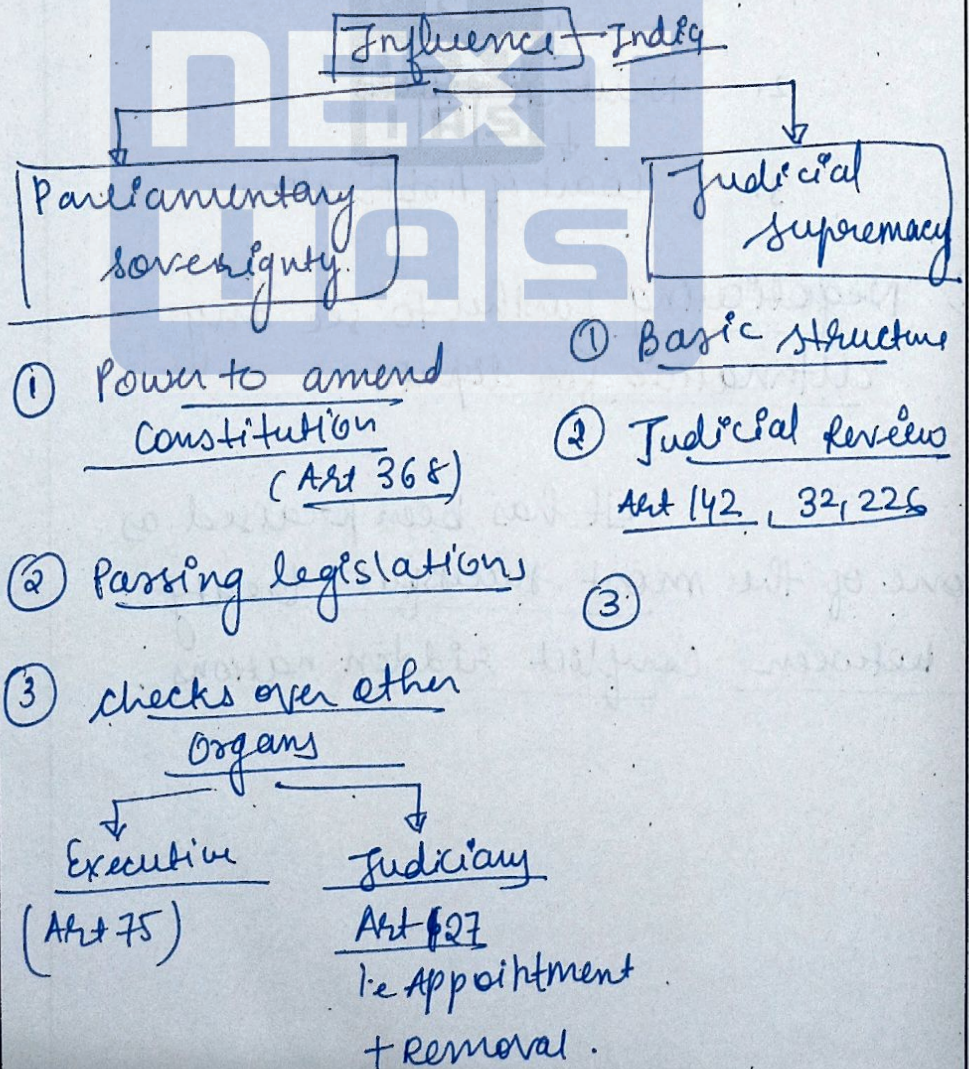 Influence - India
Parliamentary
sovereignty.
① Power to amend
Constitution
(Art 368)
② Passing legislations
③ checks over other
Organs
Executive
(Art 75)
Judiciary
Art 127
i.e Appointment
+ Removal.
Judicial
supremacy
① Basic structure
② Judicial Review
Art 142, 32, 226
③
NEXT
IAS
IAS